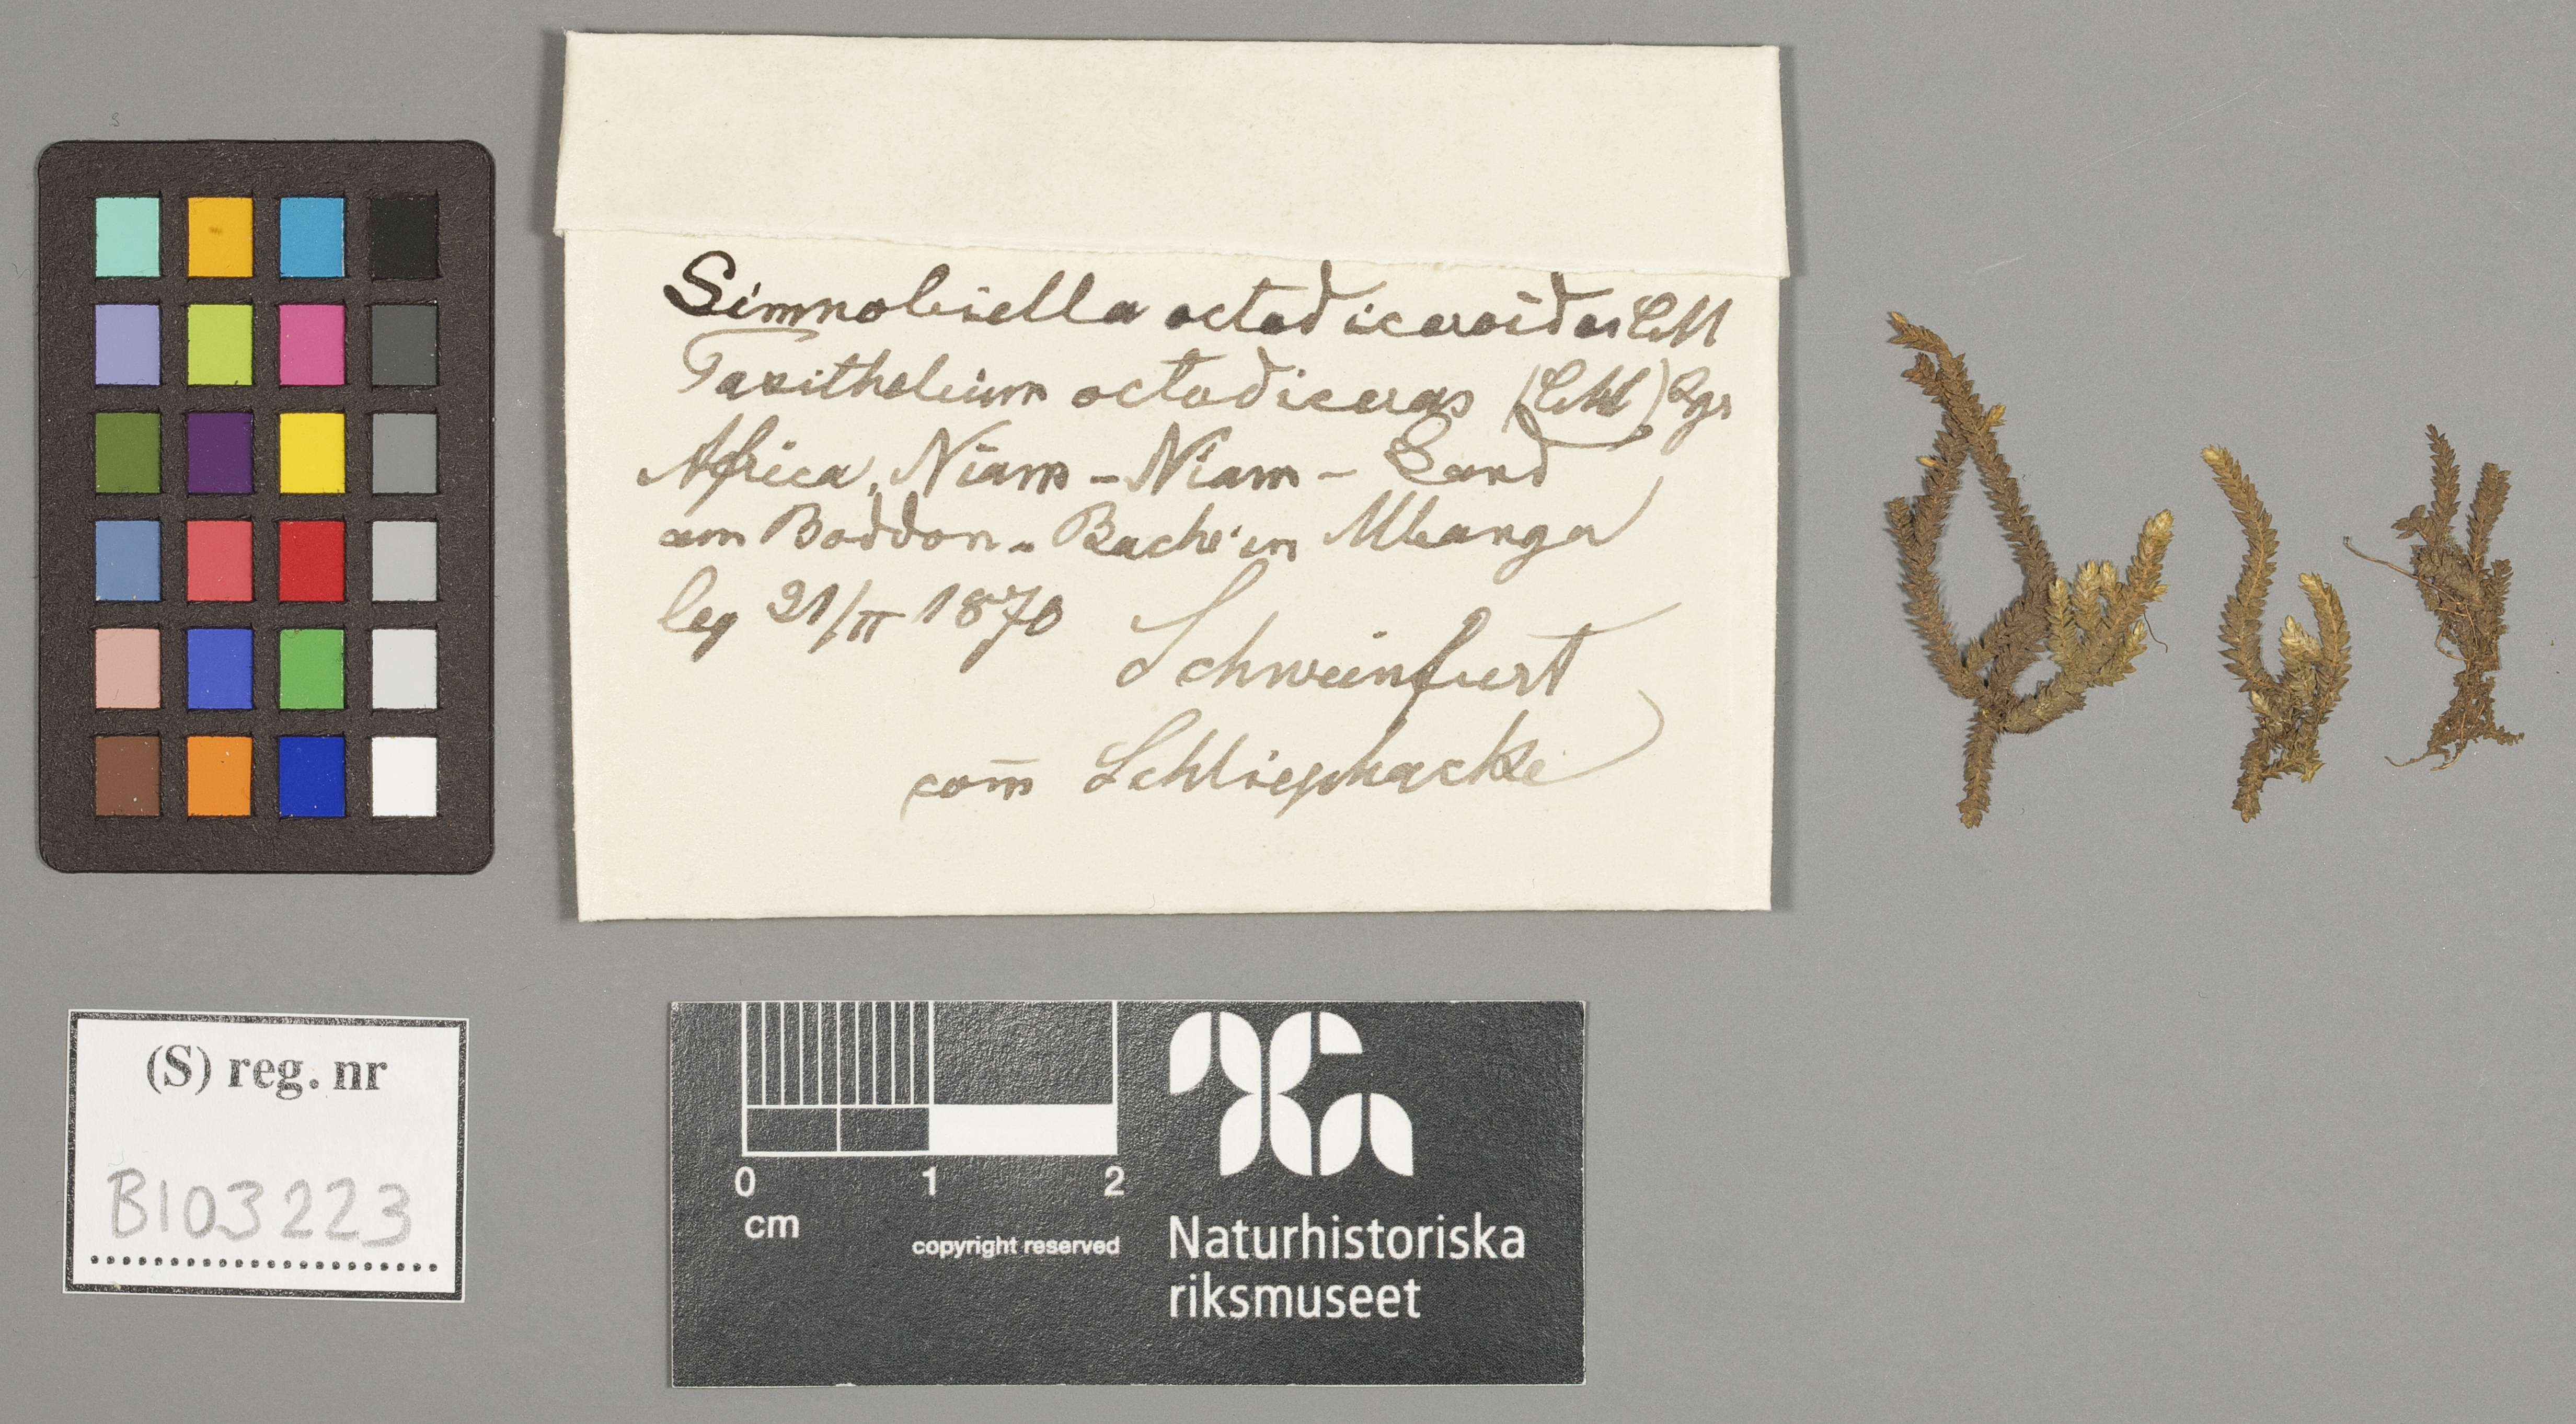 Simnobiella octodiceroides CM
Taxithelium octodiceras (CM) Lgr
Africa, Niam-Niam-Land
am Boddon-Bache in Mbanga
leg 21/II 1870
Schweinfurt
com̅ Schliephacke
(S) reg. nr
B103223
0 1 2
cm
copyright reserved
Naturhistoriska
riksmuseet